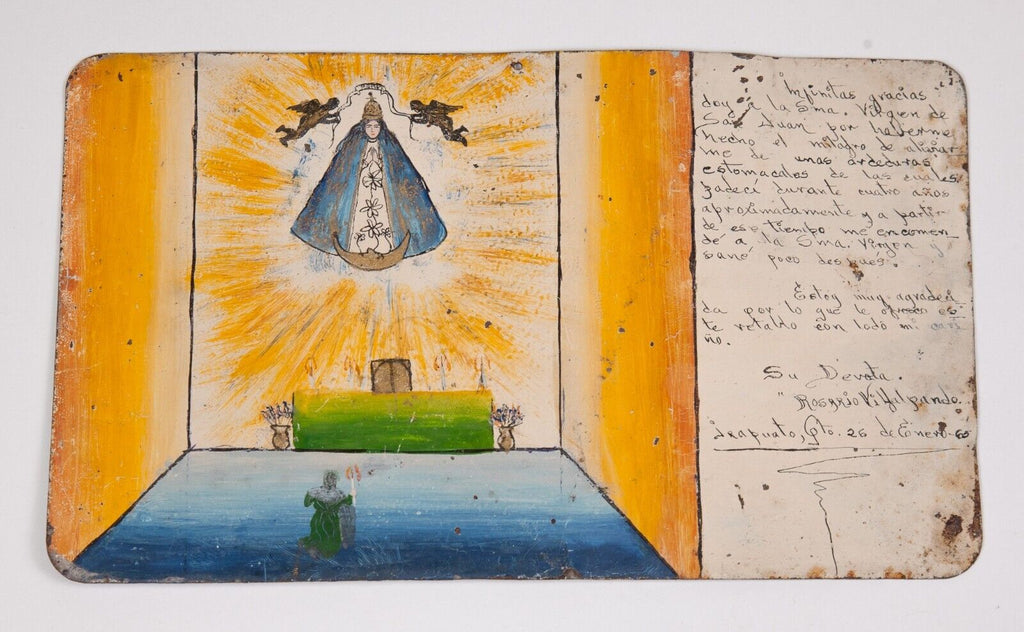 Infinitas gracias
doy a la Sma. Virgen de
San Juan por haverme
hecho el milagro de aliviar
me de unas arceduras
estomacales de las cuales
padecí durante cuatro años
aproximadamente y a partir
de ese tiempo me encomen
dé a la Sma. Virgen y
sané poco después.
Estoy muy agradeci
da por lo que le ofresco es
te retablo con todo mi cari
ño.
Su Devota.
Rosario Vifilpando.
Irapuato, Gto. 26 de Enero-65